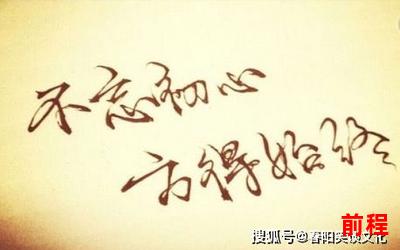 不忘初心
方得始终
前程
搜狐号@春阳笑谈文化